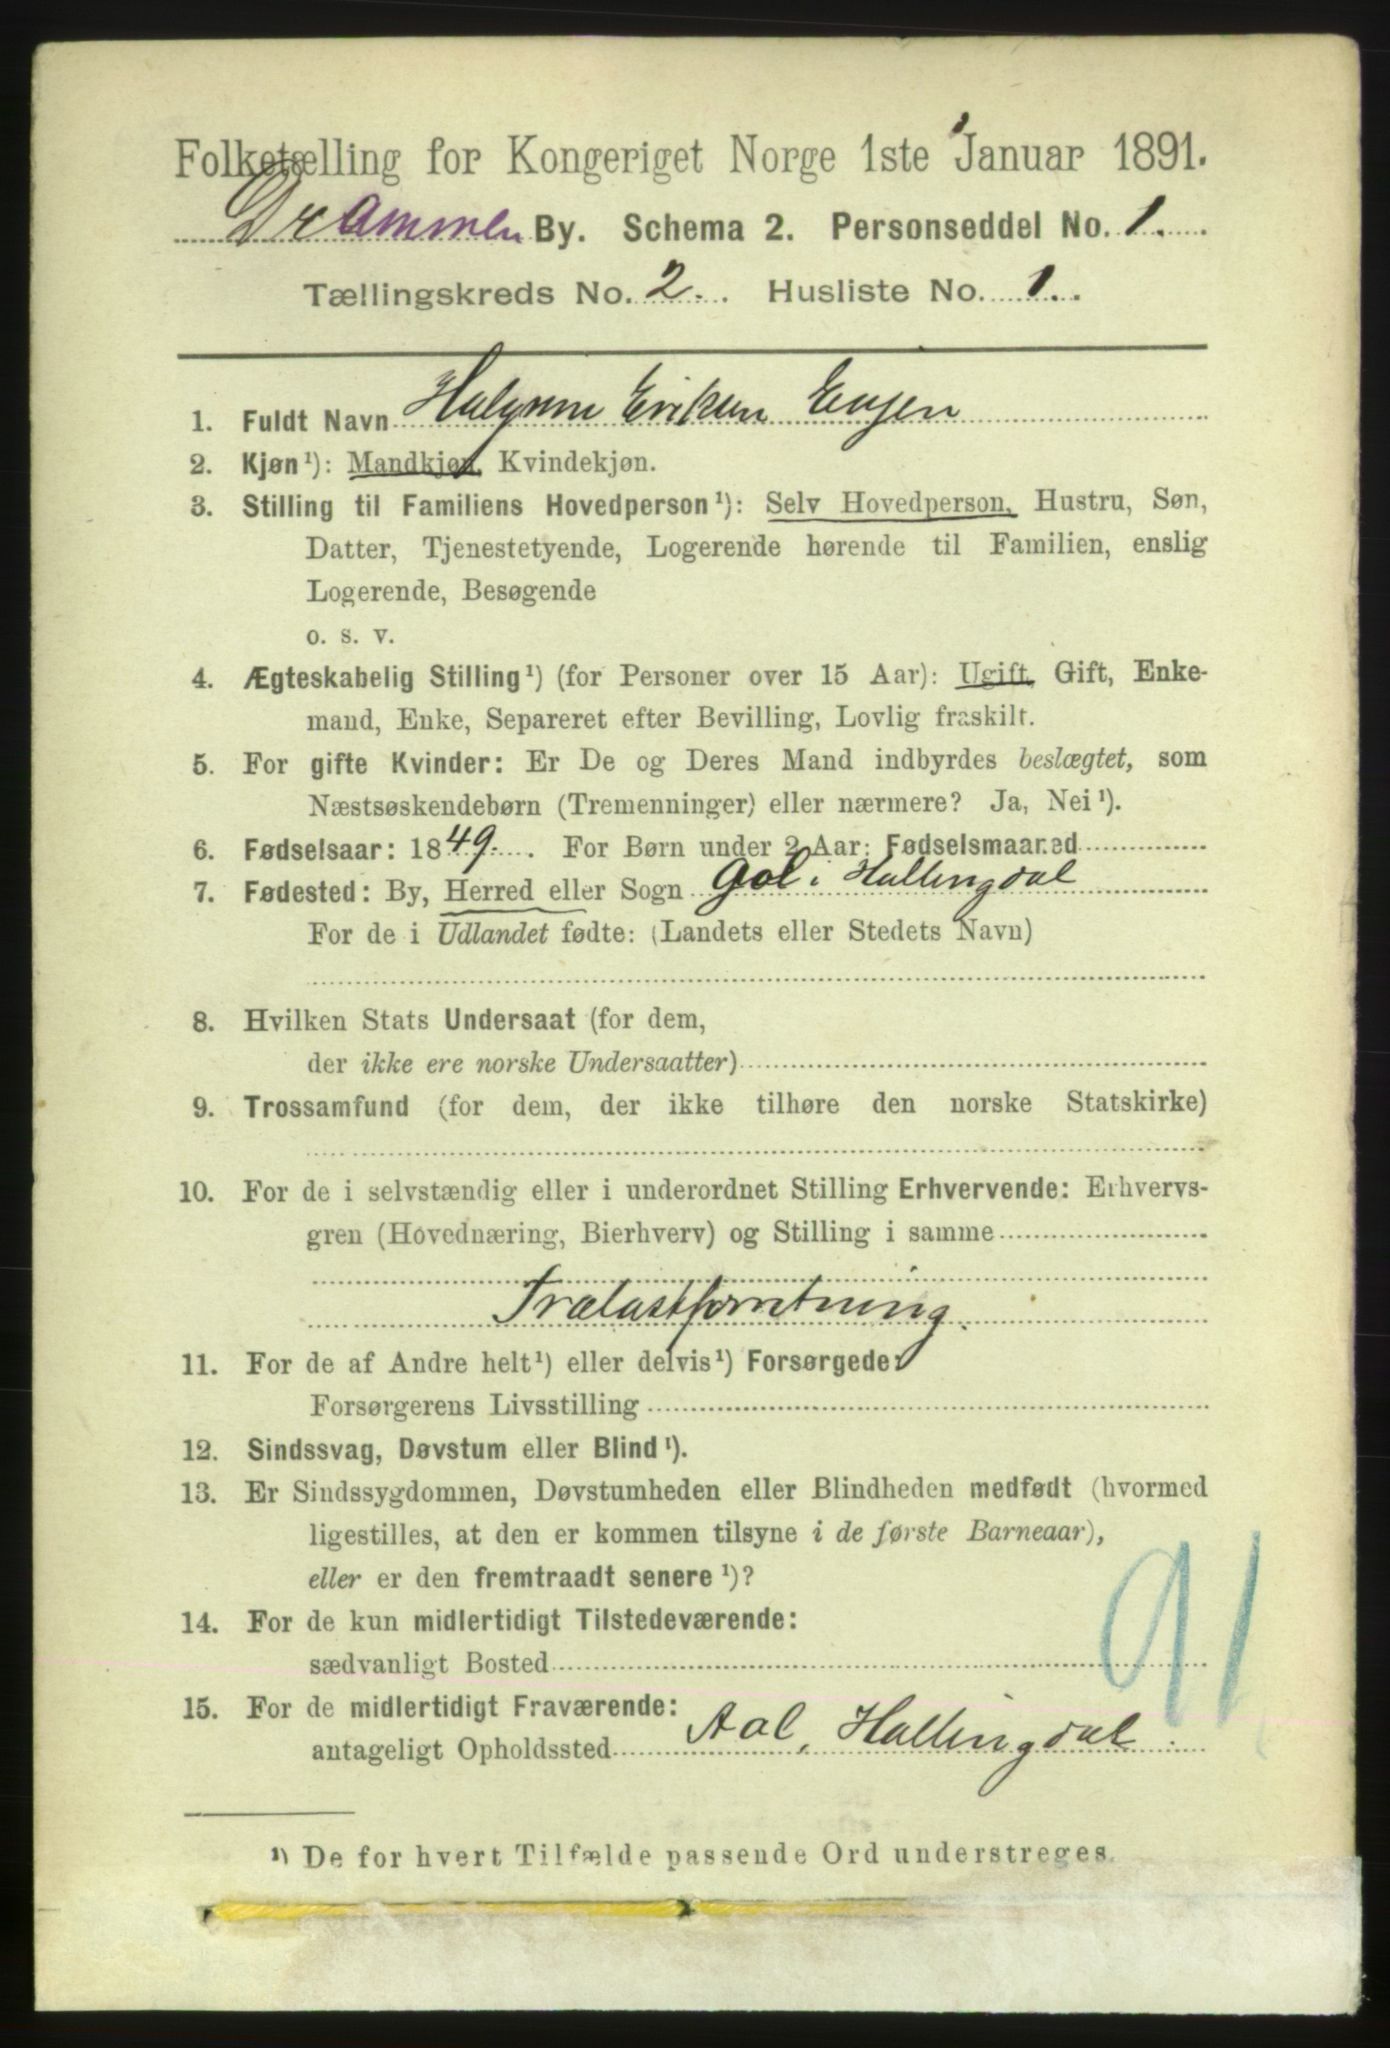 Folketælling for Kongeriget Norge 1ste Januar 1891.
Drammen By. Schema 2. Personseddel No. 1.
Tællingskreds No. 2. Husliste No. 1.
1. Fuldt Navn Eriksen
2. Kjøn¹): Mandkjøn, Kvindekjøn.
3. Stilling til Familiens Hovedperson¹): Selv Hovedperson, Hustru, Søn,
Datter, Tjenestetyende, Logerende hørende til Familien, enslig
Logerende, Besøgende
o. s. v.
4. Ægteskabelig Stilling¹) (for Personer over 15 Aar): Ugift, Gift, Enke-
mand, Enke, Separeret efter Bevilling, Lovlig fraskilt.
5. For gifte Kvinder: Er De og Deres Mand indbyrdes beslægtet, som
Næstsøskendebørn (Tremenninger) eller nærmere? Ja, Nei¹).
6. Fødselsaar: 1849. For Børn under 2 Aar: Fødselsmaaned
7. Fødested: By, Herred eller Sogn Gol i Hallingdal
For de i Udlandet fødte: (Landets eller Stedets Navn)
8. Hvilken Stats Undersaat (for dem,
der ikke ere norske Undersaatter)
9. Trossamfund (for dem, der ikke tilhøre den norske Statskirke)
10. For de i selvstændig eller i underordnet Stilling Erhvervende: Erhvervs-
gren (Hovednæring, Bierhverv) og Stilling i samme
Trælastforretning.
11. For de af Andre helt¹) eller delvis¹) Forsørgede:
Forsørgerens Livsstilling
12. Sindssvag, Døvstum eller Blind¹).
13. Er Sindssygdommen, Døvstumheden eller Blindheden medfødt (hvormed
ligestilles, at den er kommen tilsyne i de første Barneaar),
eller er den fremtraadt senere¹)?
14. For de kun midlertidigt Tilstedeværende:
sædvanligt Bosted
91
15. For de midlertidigt Fraværende:
antageligt Opholdssted Aal, Hallingdal.
¹) De for hvert Tilfælde passende Ord understreges.